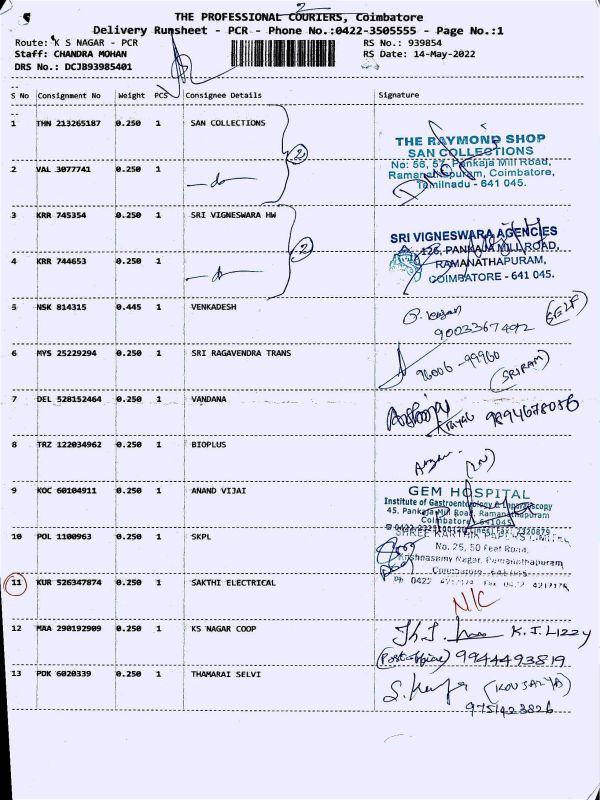 2
THE PROFESSIONAL COURIERS, Coimbatore
Delivery Runsheet - PCR - Phone No.:0422-3505555 - Page No.:1
Route: K S NAGAR - PCR RS No.: 939854
Staff: CHANDRA MOHAN RS Date: 14-May-2022
DRS No.: DCJB93985401
S No Consignment No Weight PCS Consignee Details Signature
1 THN 213265187 0.250 1 SAN COLLECTIONS
THE RAYMOND SHOP
SAN COLLECTIONS
No: 56, 57, Pankaja Mill Road,
Ramanathapuram, Coimbatore,
Tamilnadu - 641 045.
2 VAL 3077741 0.250 1 -do-
2
3 KRR 745354 0.250 1 SRI VIGNESWARA HW
SRI VIGNESWARA AGENCIES
126, PANKAJA MILL ROAD,
RAMANATHAPURAM,
COIMBATORE - 641 045.
4 KRR 744653 0.250 1 -do-
2
5 NSK 814315 0.445 1 VENKADESH
9003367492 (SELF)
6 MYS 25229294 0.250 1 SRI RAGAVENDRA TRANS
96006-99960
(SRIRAM)
7 DEL 528152464 0.250 1 VANDANA
9894678086
8 TRZ 122034962 0.250 1 BIOPLUS
9 KOC 60104911 0.250 1 ANAND VIJAI
GEM HOSPITAL
Institute of Gastroenterology & Laparoscopy
45, Pankaja Mill Road, Ramanathapuram
Coimbatore - 641045
10 POL 1100963 0.250 1 SKPL
SHREE KARTHIK PAPERS LIMITED
No. 25, 50 Feet Road,
Krishnasamy Nagar, Ramanathapuram,
Coimbatore - 641045
11 KUR 526347874 0.250 1 SAKTHI ELECTRICAL
N/C
12 MAA 290192909 0.250 1 KS NAGAR COOP
K. J. LIZZY
(Post office) 9944493819
13 PDK 6020339 0.250 1 THAMARAI SELVI
(KOUSALYA)
9751423826